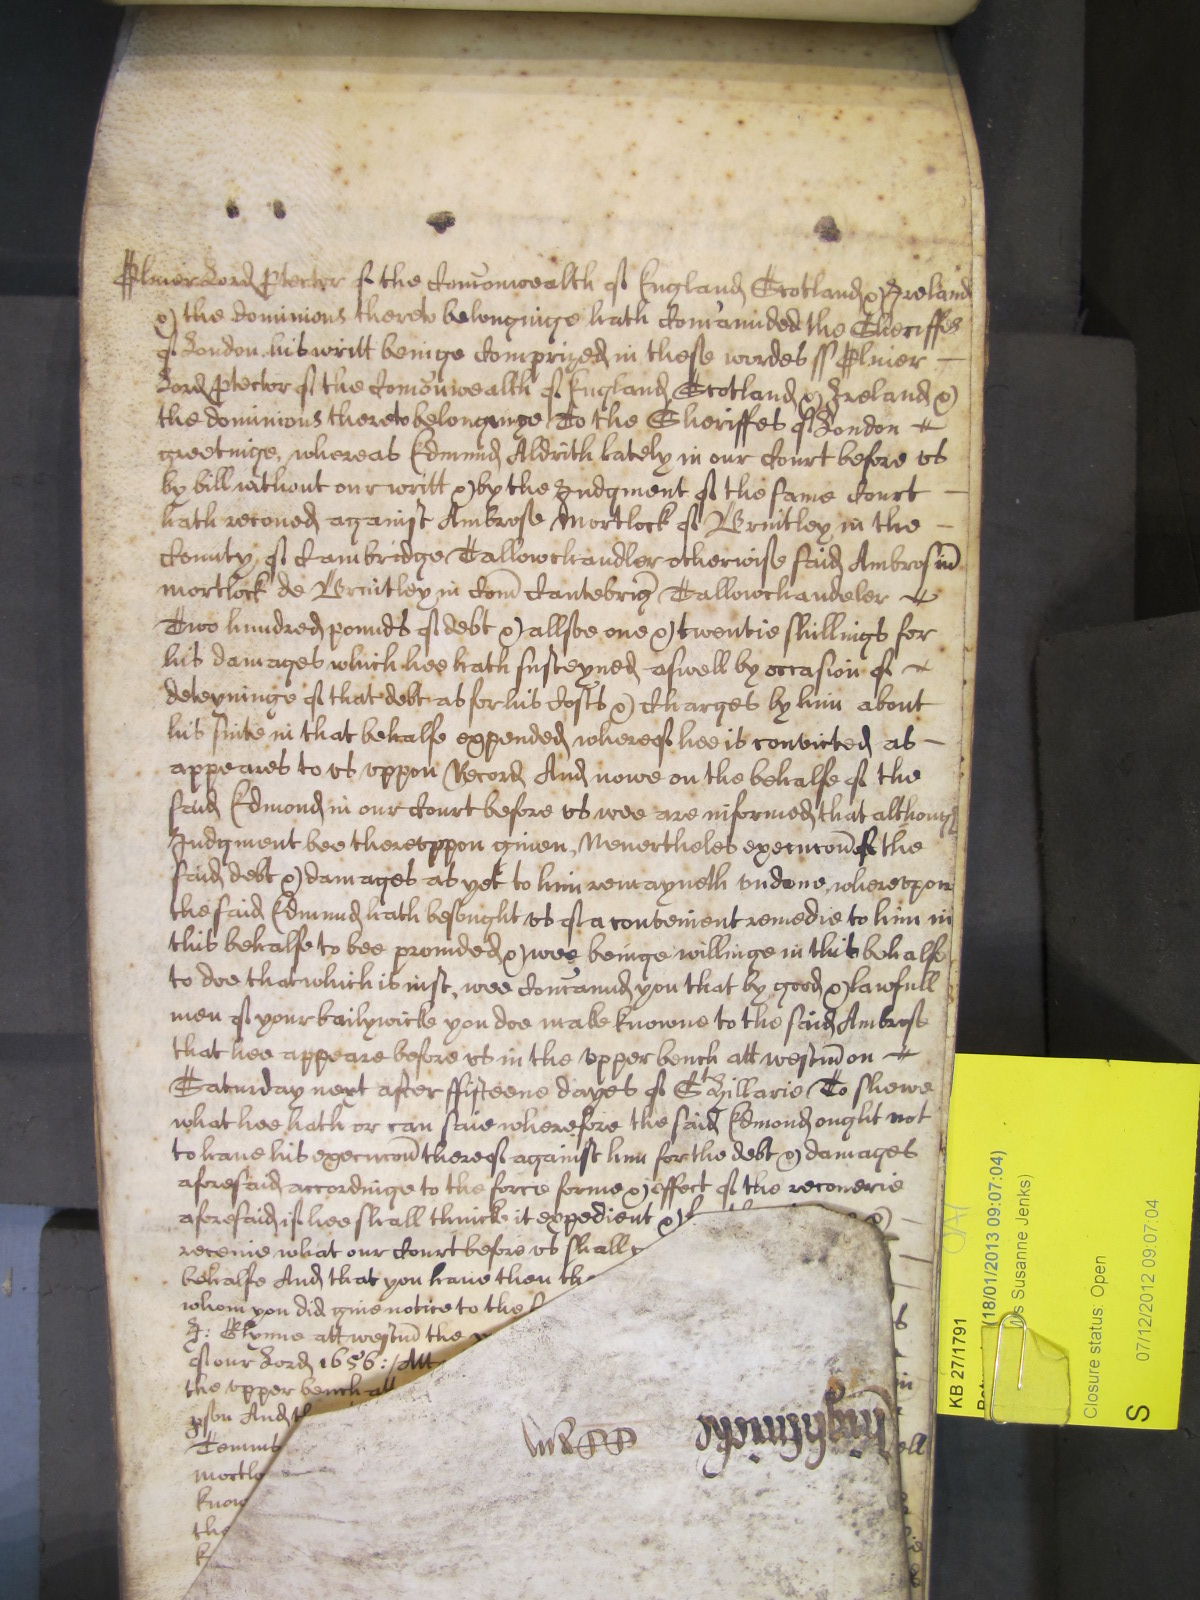 Oliver Lord Ptector of the Comonwealth of England Scotland & Ireland
& the dominions thereto belonginge hath Comaunded the Sheriffes
of London his writt beinge Comprized in these wordes ss Oliver
Lord Ptector of the Comonwealth of England Scotland & Ireland &
the dominions thereto belonginge To the Sheriffes of London
greetinge, whereas Edmund Aldrith lately in our Court before vs
by bill without our writt & by the Judgment of the same Court
hath recoued against Ambrose Mortlock of Brinkley in the
County of Cambridge Tallowchandler otherwise said Ambrosiu
mortlock de Brinkley in Com Cantebrig Tallowchandeler
Two hundred pounds of debt & allsoe one & twentie shillings for
his damages which hee hath susteyned aswell by occasion of
deteyninge of that debt as for his Costs & Charges by him about
his suite in that behalfe expended whereof hee is convicted as
appeares to vs vppon Record And nowe on the behalfe of the
said Edmond in our Court before vs wee are informed that although
Judgment bee therevppon giuen, Neuertheles execucon of the
said debt & damages as yet to him remayneth vndone, wherevpon
the said Edmund hath besought vs of a convenient remedie to him in
this behalfe to bee prouided & wee beinge willinge in this behalfe
to doe that which is iust, wee Comaund you that by good & lawfull
men of your bailywicke you doe make knowne to the said Ambrose
that hee appeare before vs in the vpper bench att westm on
Saturday next after ffifteene dayes of St Hillarie To shewe
what hee hath or can saie wherefore the said Edmond ought not
to haue his execucon thereof against him for the debt & damages
aforesaid accordinge to the force forme & effect of the recouerie
aforesaid if hee shall thincke it expedient &
receiue what our Court before vs shall
behalfe And that you haue then
whom you did giue notice to the
J: Glynne att westm the
of our Lord 1656: / Att
the vpper bench att
pson And
mortlo
know
the
KB 27/1791
(18/01/2013 09:07:04)
Susanne Jenks)
Closure status: Open
S
07/12/2012 09:07:04